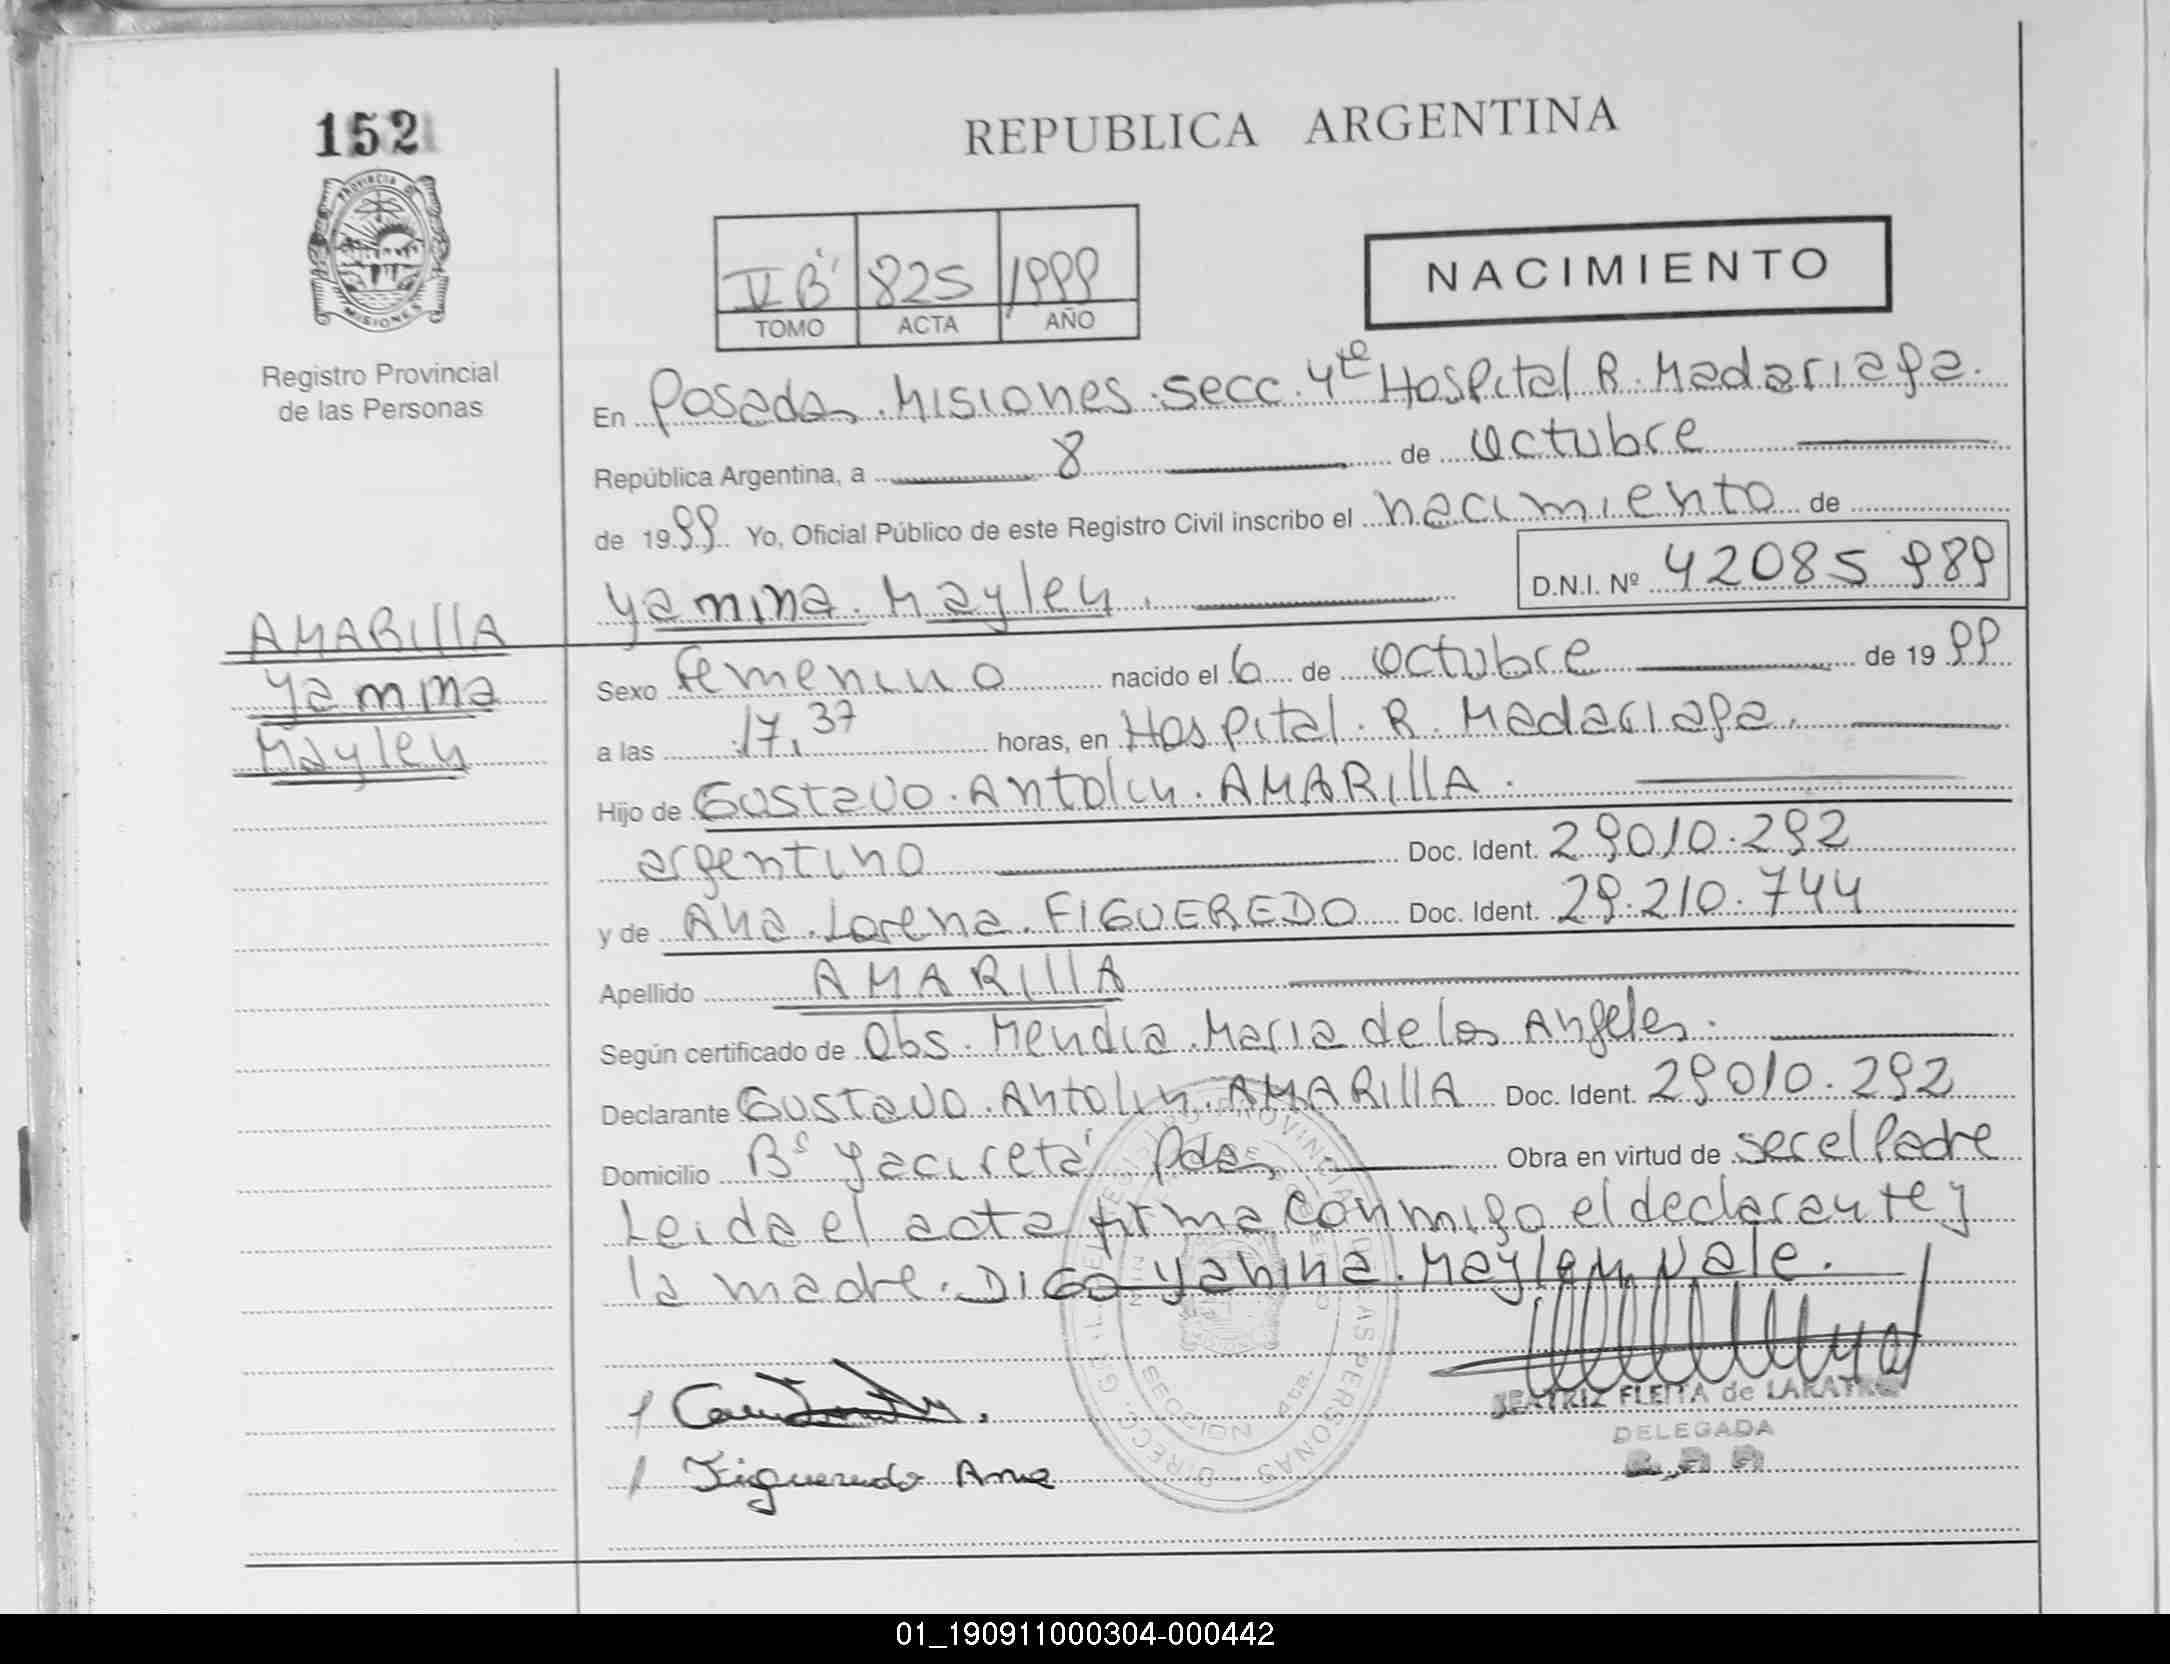 152
REPUBLICA ARGENTINA
PROVINCIA D
MISIONES
Registro Provincial
de las Personas
V B' 825 1999
TOMO ACTA AÑO
NACIMIENTO
En Posadas. Misiones. Secc. 4ta Hospital R. Madariaga.
República Argentina, a 8 de Octubre
de 1999 Yo, Oficial Público de este Registro Civil inscribo el nacimiento de
Yamina. Maylen. D.N.I. Nº 42085989
AMARIllA
Yamina
Maylen
Sexo femenino nacido el 6 de Octubre de 1999
a las 17,37 horas, en Hospital. R. Madariaga.
Hijo de Gustavo. Antolin. AMARIllA.
argentino Doc. Ident. 29010.292
y de Ana. Lorena. FIGUEREDO Doc. Ident. 29.210.744
Apellido AMARIllA
Según certificado de Obs. Mendia. Maria de los Angeles.
Declarante Gustavo. Antolin. AMARIllA Doc. Ident. 29010.292
Domicilio Bº Yacireta' Pdas, Obra en virtud de ser el Padre
Leida el acta firma conmigo el declarante y
la madre. DIGO Yanina. Maylen. Vale.
BEATRIZ FLEITA de LARATRO
DELEGADA
Figueredo Ana
SECCION 4ta.
01_190911000304-000442